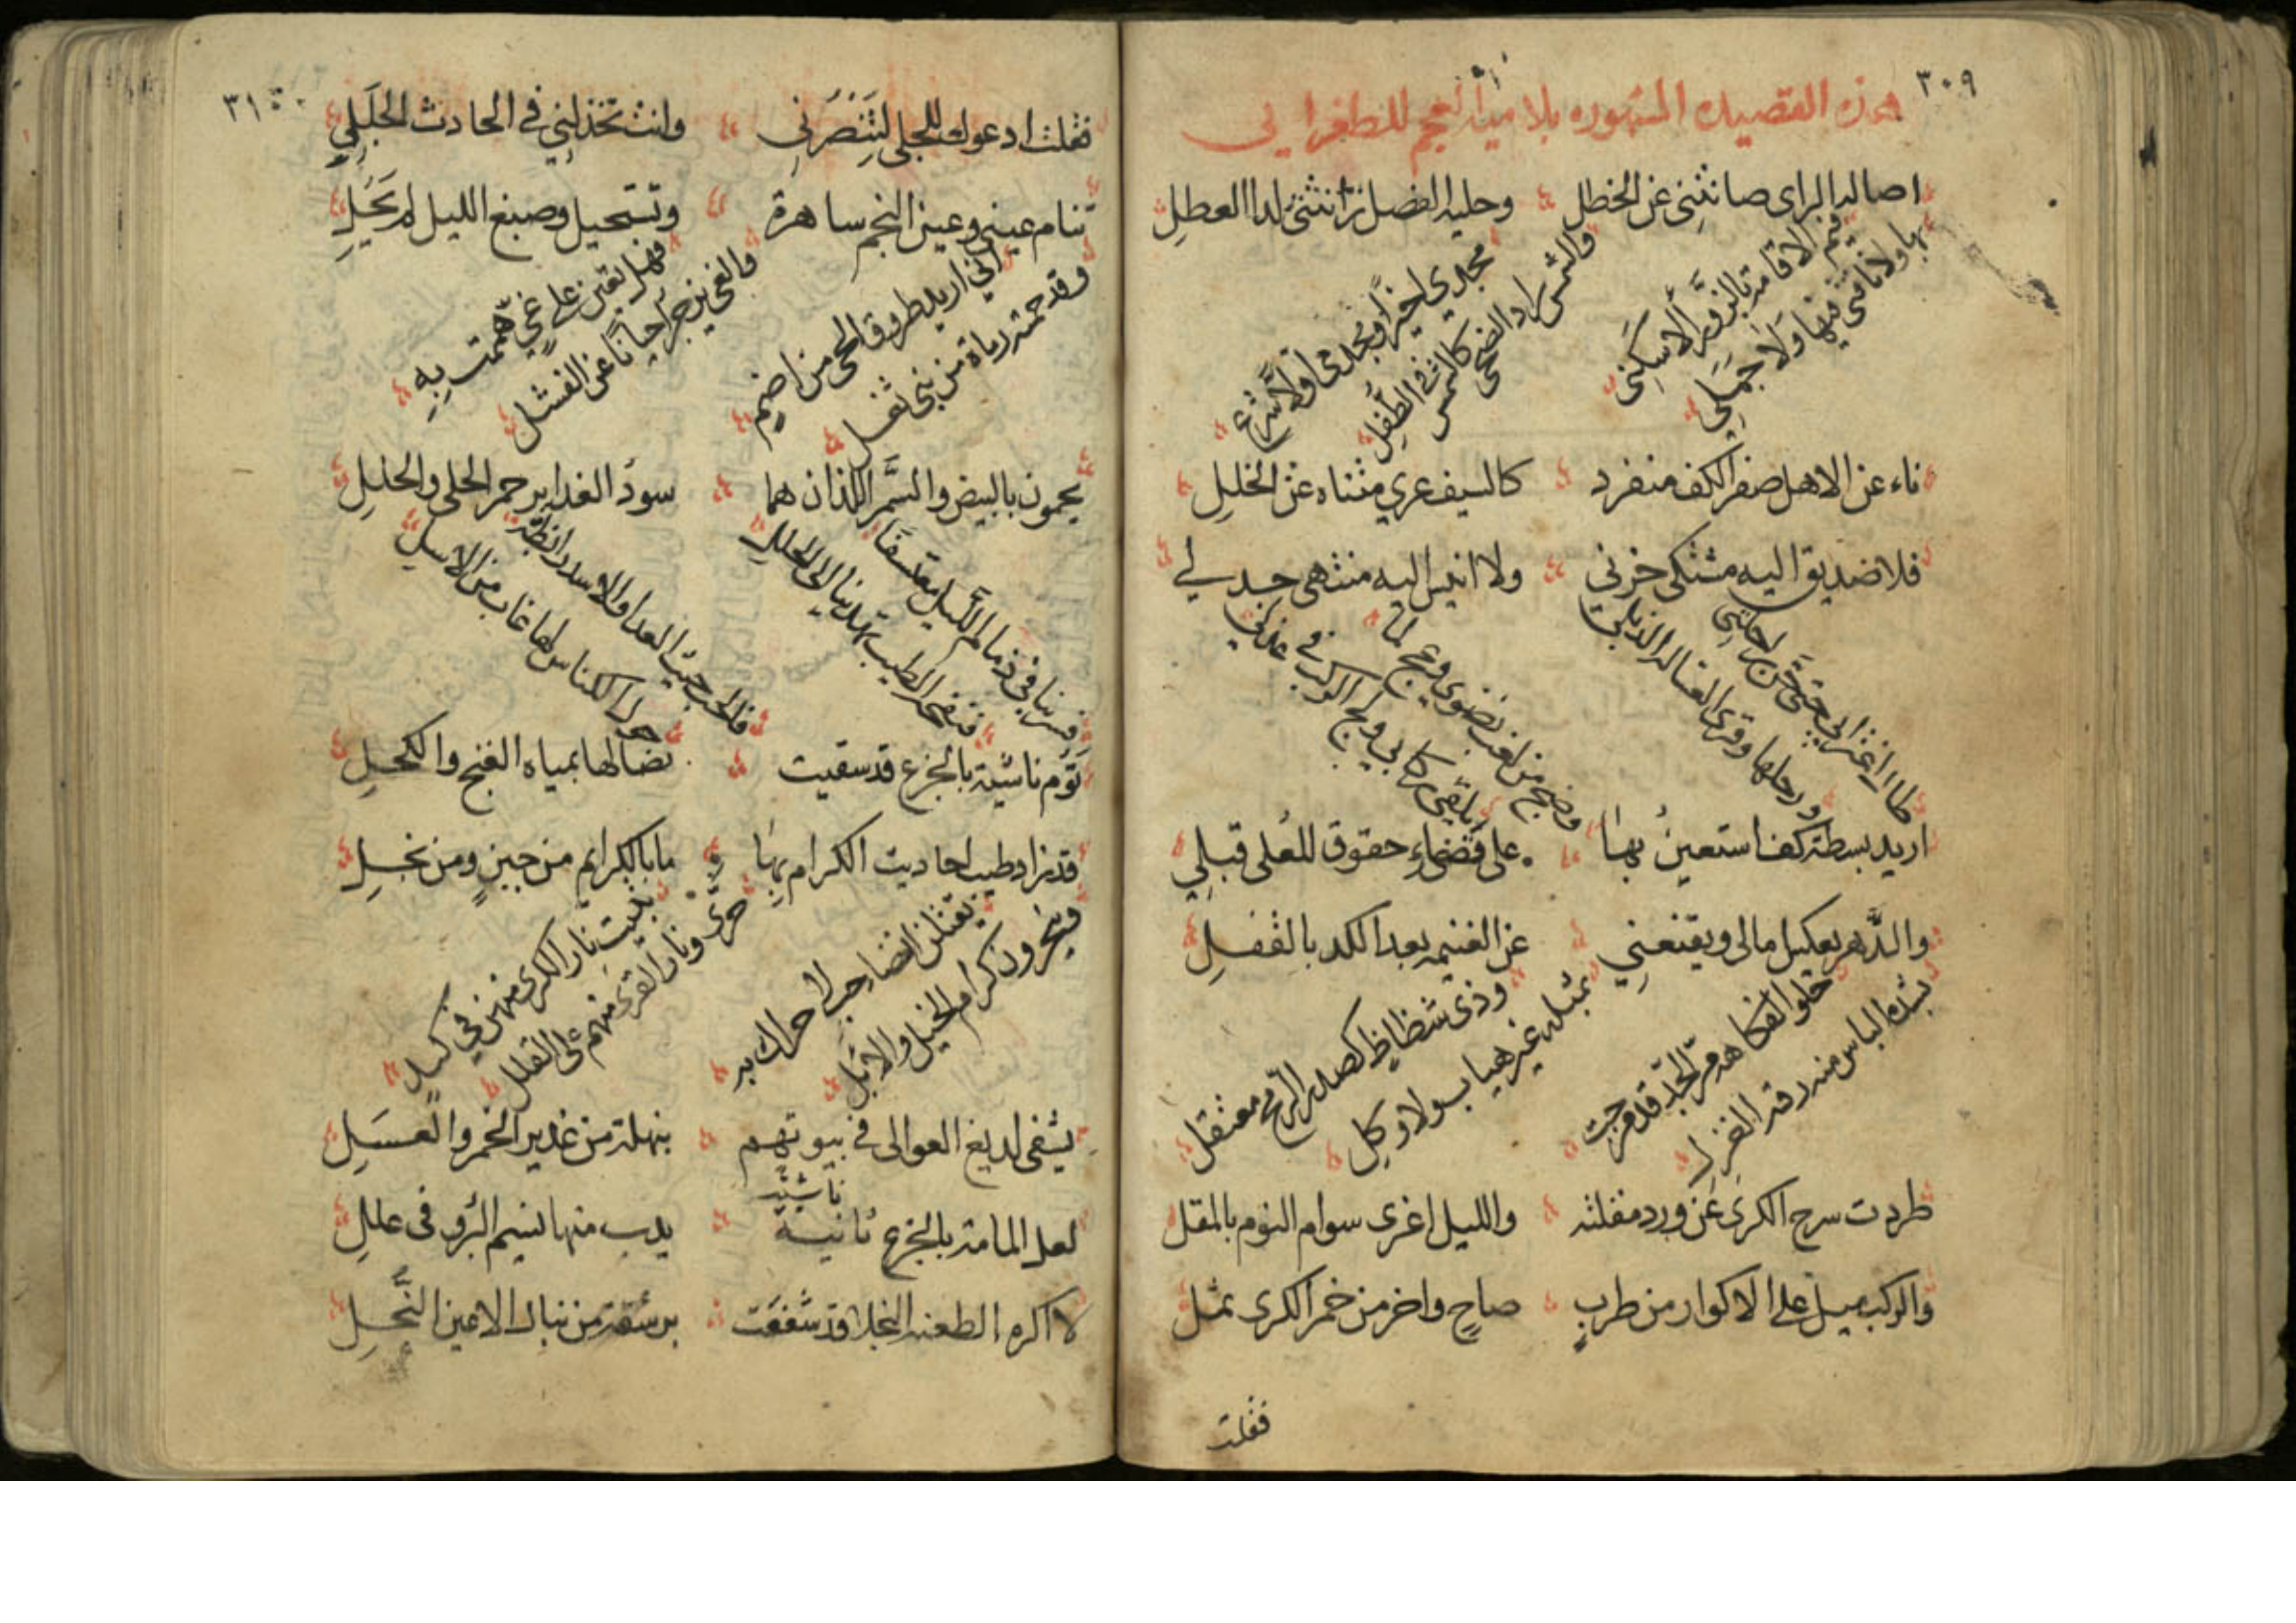 ٣٠٩
هذه القصيده المشهوره بلامية العجم للطغرايي
اصالة الراى صانتني عن الخطل وحلية الفضل زانتني لدا العطل
مجدي اخيرًا ومجدى اولًا شرع والشمس راد الضحى كالشمس في الطفل
فيم الاقامة بالزورآء لا سكني بها ولا ناقتى فيها ولا جملي
ناء عن الاهل صفر الكف منفرد كالسيف عري متناه عن الخلل
فلا صديق اليه مشتكى حزني ولا انيس اليه منتهى جدلي
طال اغترابي حتى حن راحلتي ورحلها وقرى العسالة الذبل
وضج من لغب نضوي وعج لما يلقى ركابي ولج الركب في عذلي
اريد بسطة كف استعين بها على قضاء حقوق للعلى قبلي
والدهر يعكس امالى ويقنعني عن الغنيمه بعد الكد بالقفل
وذى شطاط كصدر الرمح معتقل بمثله غير هياب ولا وكل
حلو الفكاهه مر الجد قد مزجت بشدة الباس منه رقة الغزل
طردت سرح الكرى عن ورد مقلته والليل اغرى سوام النوم بالمقل
والركب ميل على الاكوار من طرب صاح واخر من خمر الكرى ثمل
فقلت
٣١٠
فقلت ادعوك للجلى لتنصرني وانت تخذلني في الحادث الجلل
تنام عيني وعين النجم ساهرة وتستحيل وصبغ الليل لم يحل
فهل تعين على غي هممت به والغي يزجر احيانًا عن الفشل
اني اريد طروق الحى من اضم وقد حمته رماة من بنى ثعل
يحمون بالبيض والسمر اللذان هما سود الغداير حمر الحلى والحلل
فسر بنا في ذمام الليل معتسفًا فنفحة الطيب تهدينا الى الحلل
فالحب حيث العدا والاسد رابضة حول الكناس لها غاب من الاسل
نؤم ناشية بالجزع قد سقيت نصالها بمياه الغنج والكحل
قد زاد طيب احاديث الكرام بها ما بالكرايم من جبن ومن بخل
تبيت نار الكرى منهن في كبد حرى ونار القرى منهم على القلل
يقتلن انضاء حب لا حراك به وينحرون كرام الخيل والابل
يشفى لديغ العوالى في بيوتهم بنهلة من غدير الخمر والعسل
ناشية
لعل المامة بالجزع ثانية يدب منها نسيم البرؤ فى عللي
لا اكره الطعنة النجلا قد شفعت برشقة من نبال الاعين النجل